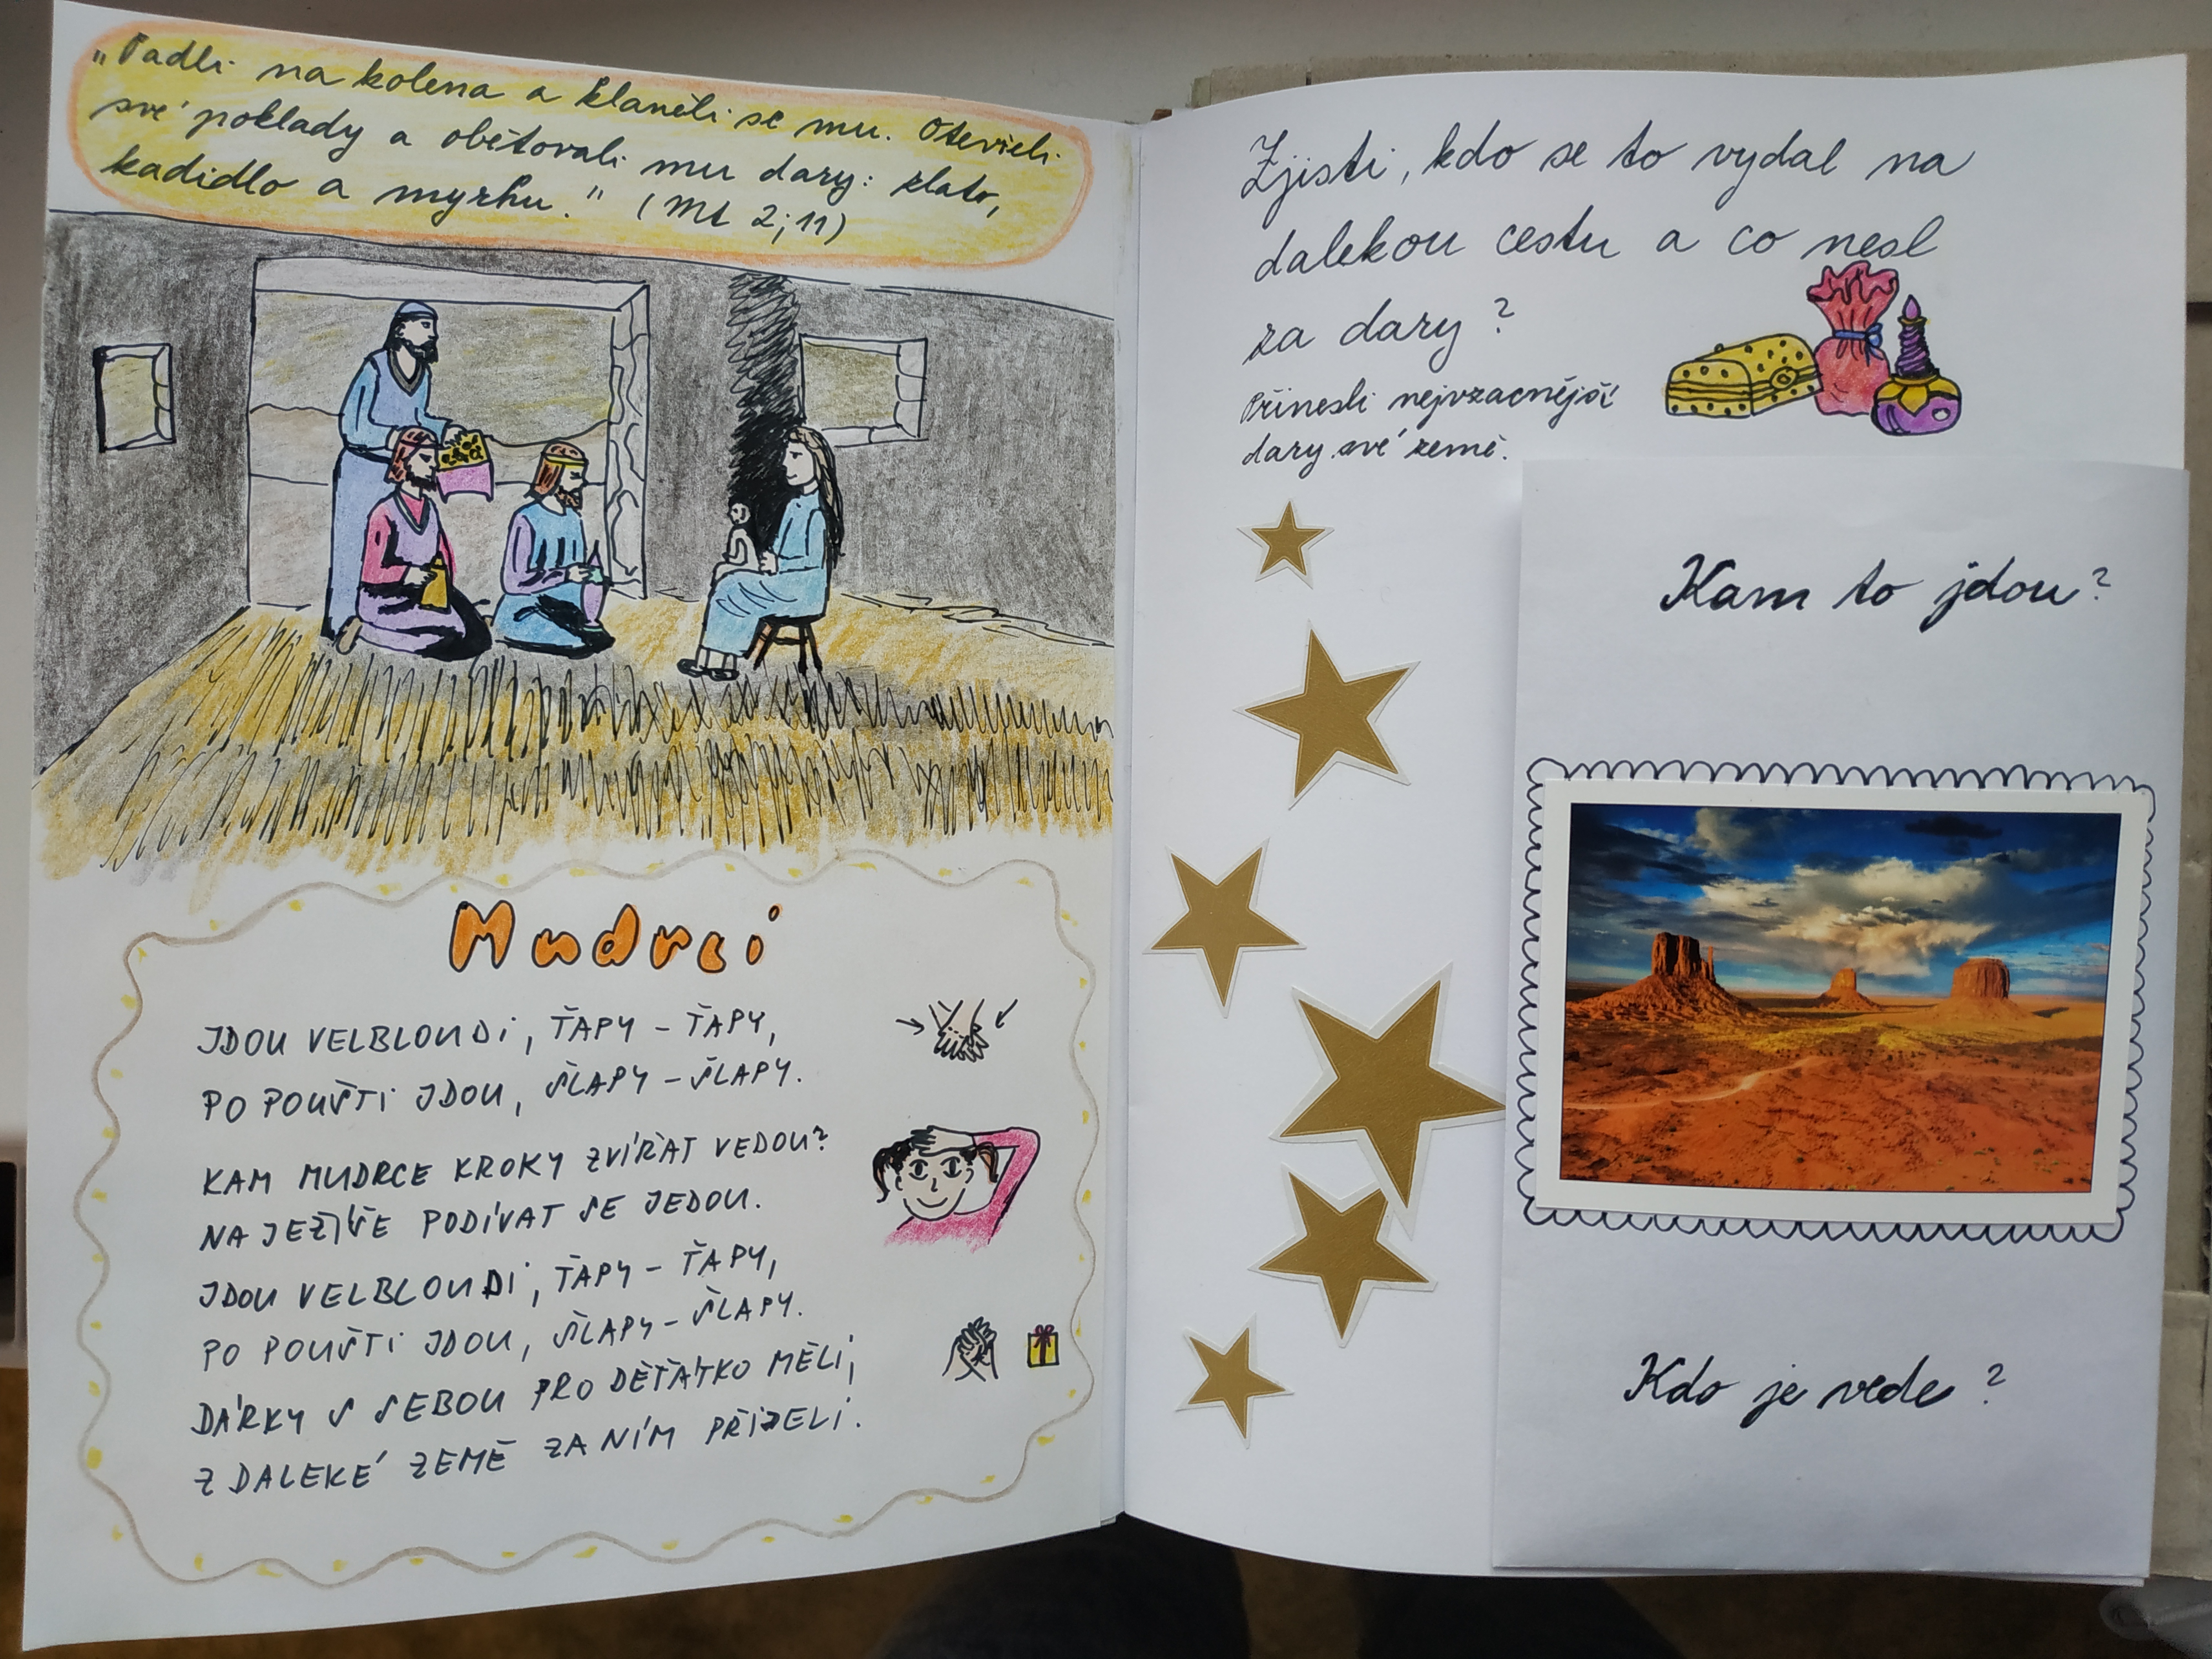 „Padli na kolena a klaněli se mu. Otevřeli
své poklady a obětovali mu dary: zlato,
kadidlo a myrhu." (Mt 2;11)
Mudrci
JDOU VELBLOUDI, ŤAPY – ŤAPY,
PO POUŠTI JDOU, ŠLAPY – ŠLAPY.
KAM MUDRCE KROKY ZVÍŘAT VEDOU?
NA JEŽÍŠE PODÍVAT SE JEDOU.
JDOU VELBLOUDI, ŤAPY – ŤAPY,
PO POUŠTI JDOU, ŠLAPY – ŠLAPY.
DÁRKY S SEBOU PRO DĚŤÁTKO MĚLI,
Z DALEKÉ ZEMĚ ZA NÍM PŘIJELI.
Zjisti, kdo se to vydal na
dalekou cestu a co nesl
za dary?
Přinesli nejvzácnější
dary své země.
Kam to jdou?
Kdo je vede?